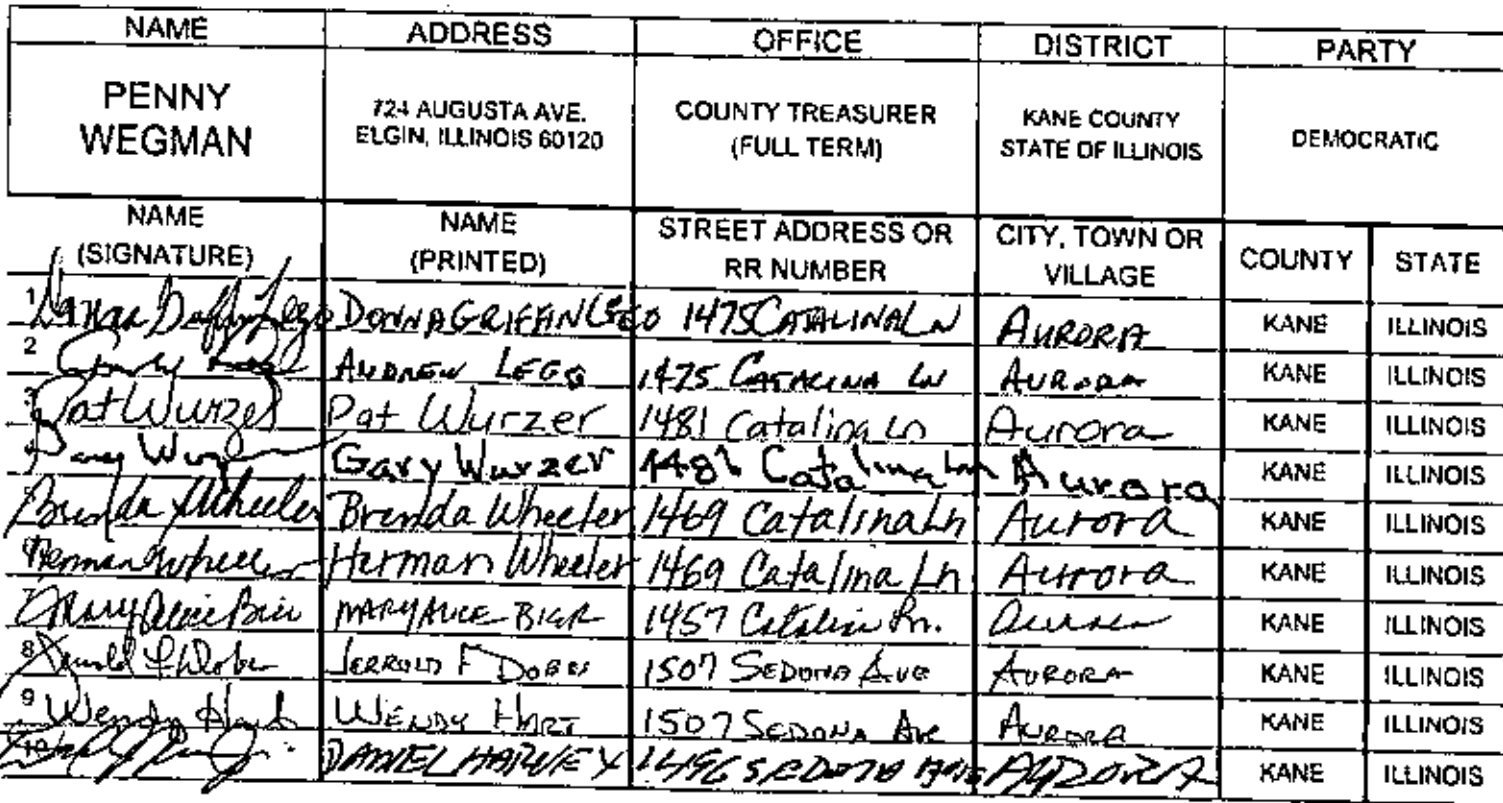 NAME ADDRESS OFFICE DISTRICT PARTY
PENNY WEGMAN 724 AUGUSTA AVE. ELGIN, ILLINOIS 60120 COUNTY TREASURER (FULL TERM) KANE COUNTY STATE OF ILLINOIS DEMOCRATIC
NAME (SIGNATURE) NAME (PRINTED) STREET ADDRESS OR RR NUMBER CITY, TOWN OR VILLAGE COUNTY STATE
1 DONNA GRIFFIN 1475 CATALINA LN AURORA KANE ILLINOIS
2 ANDREW LEGG 1475 CATALINA LN AURORA KANE ILLINOIS
3 Pat Wurzer Pat Wurzer 1481 Catalina Ln Aurora KANE ILLINOIS
4 Gary Wurzer 1481 Catalina Ln Aurora KANE ILLINOIS
Brenda Wheeler Brenda Wheeler 1469 Catalina Ln Aurora KANE ILLINOIS
Herman Wheeler Herman Wheeler 1469 Catalina Ln Aurora KANE ILLINOIS
7 MARY ALICE 1457 Ln. KANE ILLINOIS
8 JERROLD F 1507 SEDONA AVE AURORA KANE ILLINOIS
9 Wendy Hart WENDY HART 1507 SEDONA AVE AURORA KANE ILLINOIS
10 DANIEL HARVEY 1496 SEDONA AURORA KANE ILLINOIS